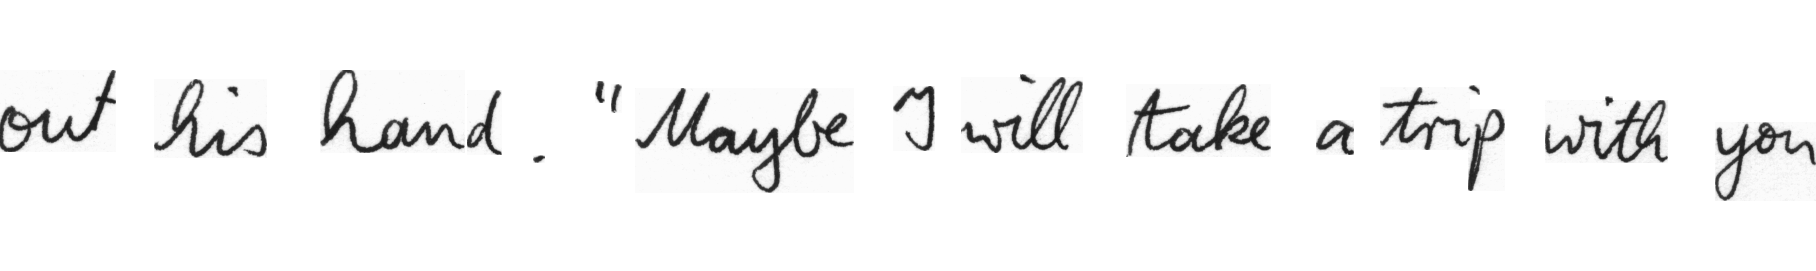 out his hand. "Maybe I will take a trip with you